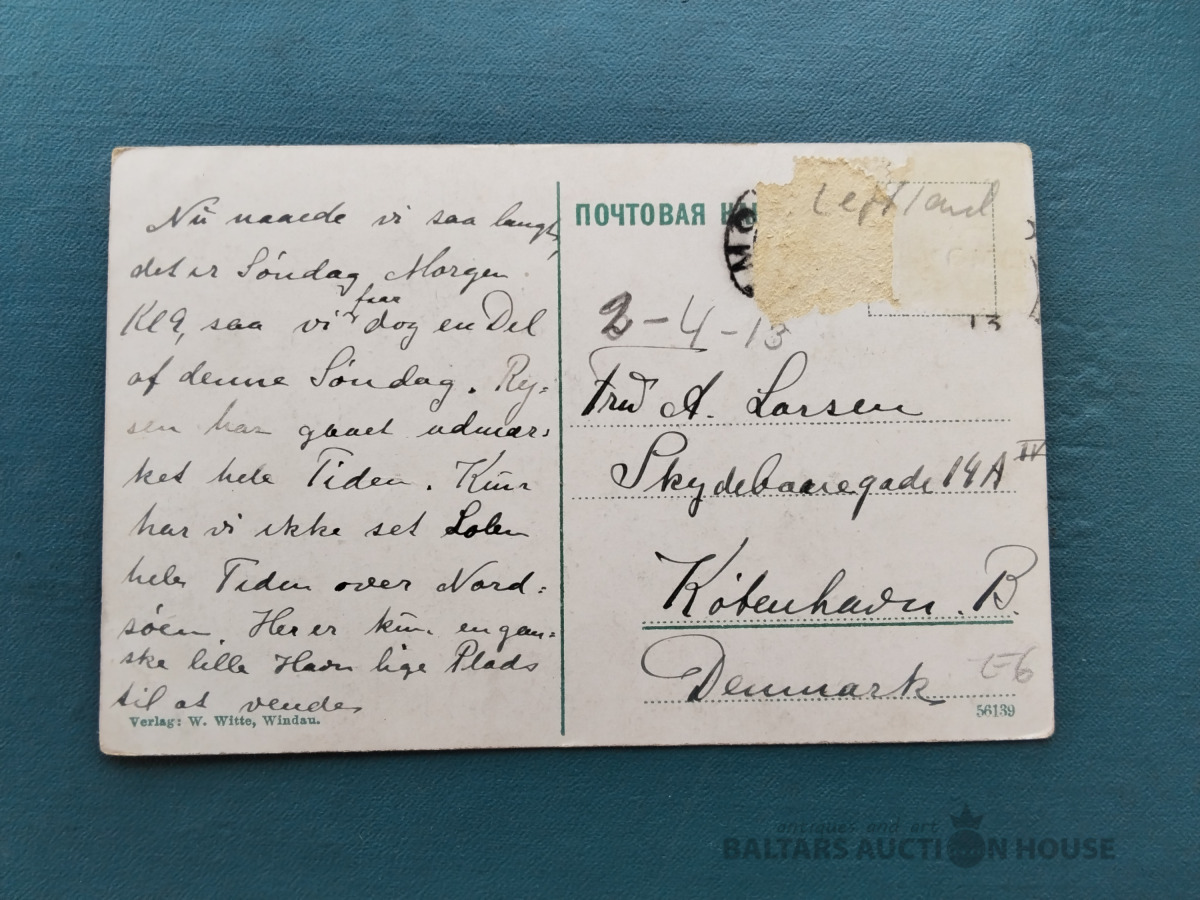 Nu naaede vi saa langt,
det er Søndag Morgen
Kl 9, saa vi faar dog en Del
af denne Søndag. Rej=
sen har gaaet udmær=
ket hele Tiden. Kun
har vi ikke set Solen
hele Tiden over Nord=
søen. Her er kun en gan=
ske lille Havn lige Plads
til at vende
Verlag: W. Witte, Windau.
ПОЧТОВАЯ
Lettland
13
2-4-13
Fru A. Larsen
Skydebanegade 14A IV
København. B.
Denmark
E6
56139
antiques and art
BALTARS AUCTION HOUSE